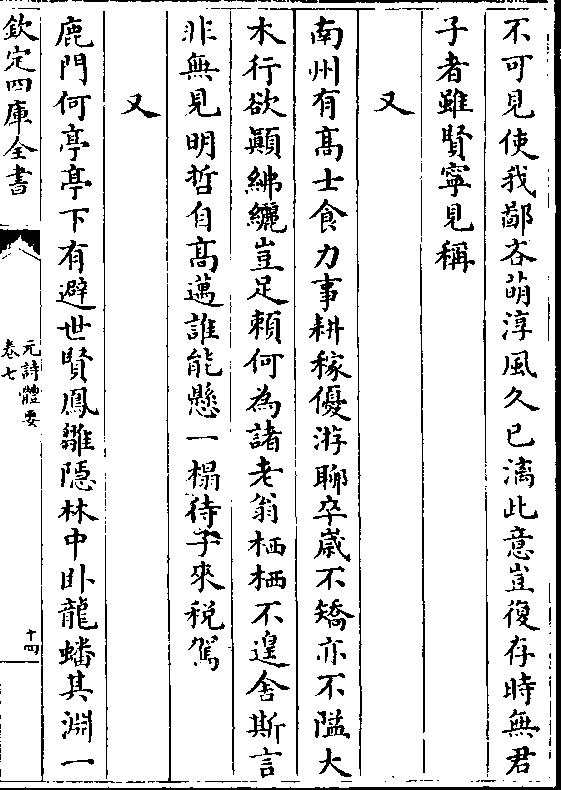 不可見使我鄙吝萌淳風久已漓此意豈復存時無君
子者雖賢寧見稱
又
南州有髙士食力事耕稼優游聊卒嵗不矯亦不隘大
木行欲顛紼纚豈足頼何為諸老翁栖栖不遑舍斯言
非無見明哲自髙邁誰能懸一榻待子來税駕
又
鹿門何亭亭下有避世賢鳳雛隠林中卧龍蟠其淵一
欽定四庫全書
元詩體要
卷七
十四